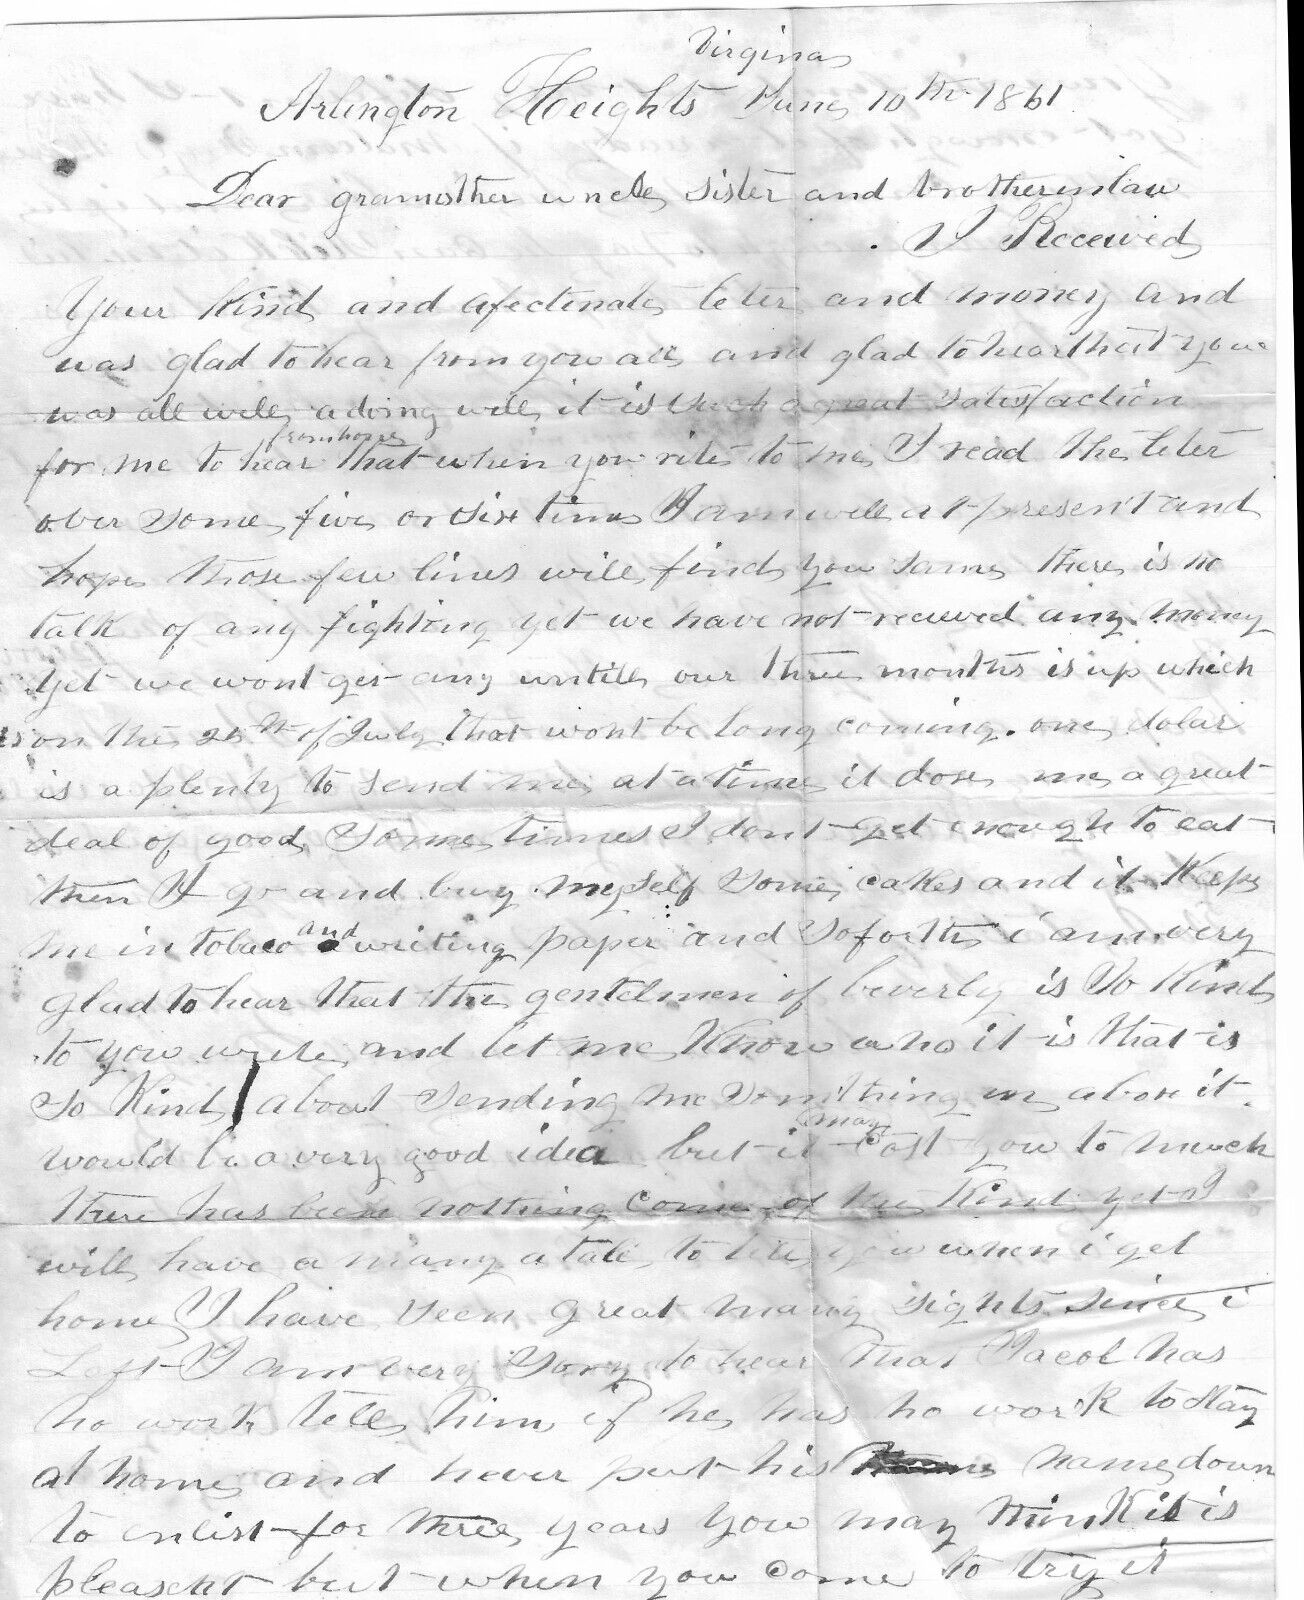 Virginia
Arlington Heights June 10th 1861
Dear gramother uncle sister and brotherinlaw
I Received
Your Kind and afectinate leter and money and
was glad to hear from you all and glad to hear that you
was all well adoing well it is such a great satisfaction
from home
for me to hear that when you rite to me I read the leter
over some five or six times I am well at present and
hope those few lines will find you same there is no
talk of any fighting yet we have not recieved any money
yet we wont get any untill our three months is up which
is on the 25th of July that wont be long coming. one dolar
is a plenty to send me at a time it dose me a great
deal of good some times I dont get enough to eat
then I go and buy myself some cakes and it Keeps
me in tobaco and writing paper and soforth i am very
glad to hear that the gentelmen of beverly is so Kind
to you write and let me Know who it is that is
so Kind about sending me somthing in a box it
may
would be a very good idea but it cost you to much
there has been nothing come of the Kind yet I
will have a many a tale to tell you when i get
home I have seen great many sights since i
Left I am very sory to hear that Jacob has
no work tell him if he has no work to stay
at home and never put his name down
to enlist for three years you may think it is
pleasent but when you come to try it